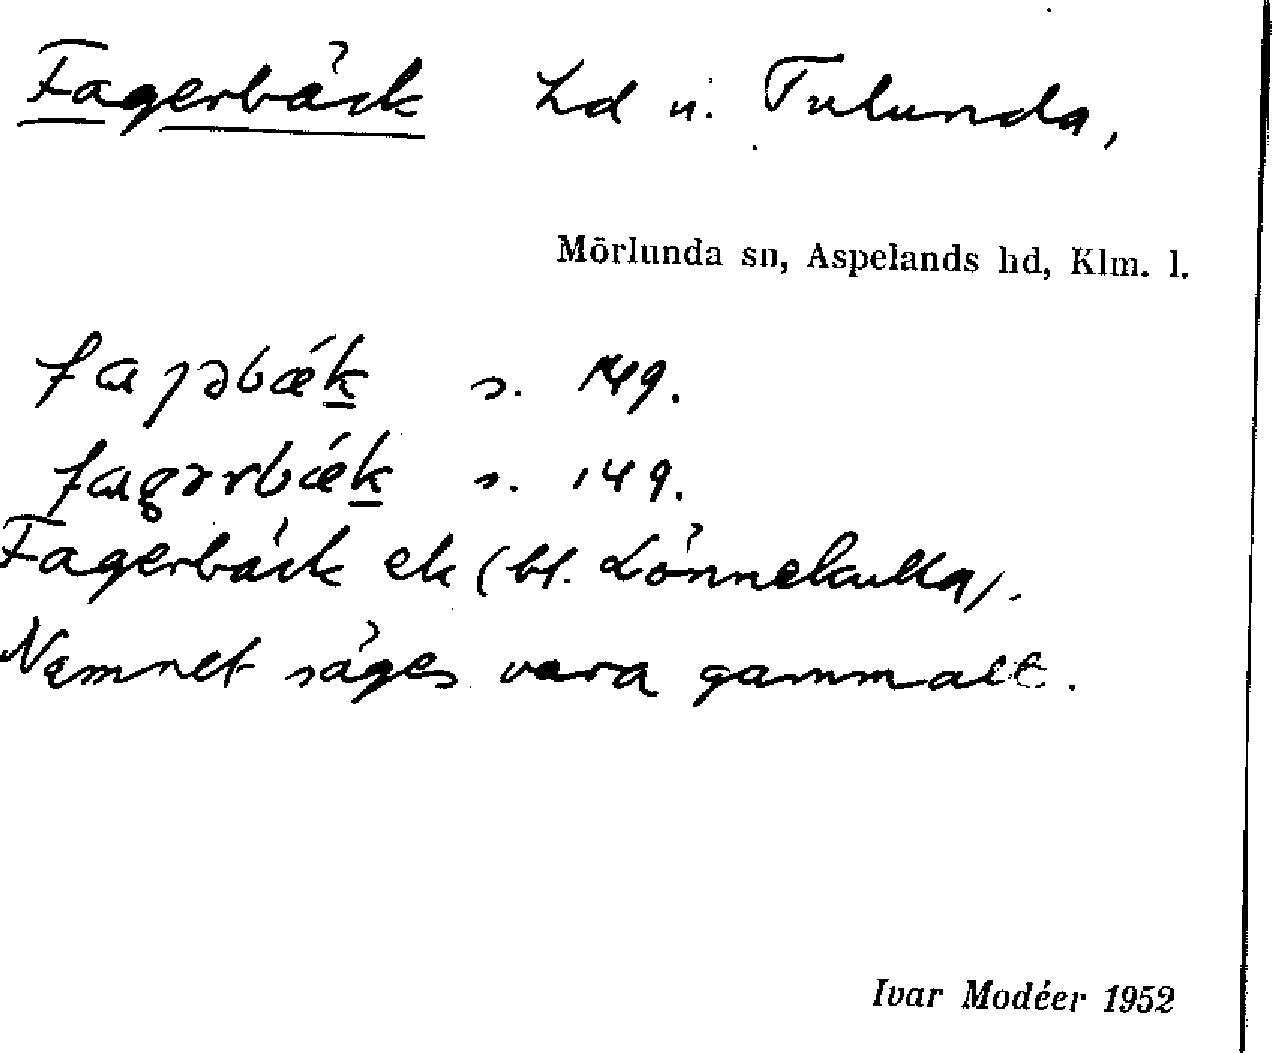 Fagerbäck Ld u. Tulunda,
Mörlunda sn, Aspelands hd, Klm. l.
s. 149.
s. 149.
Fagerbäck ek (bl. Lönnekulla).
Namnet säges vara gammalt.
Ivar Modéer 1952